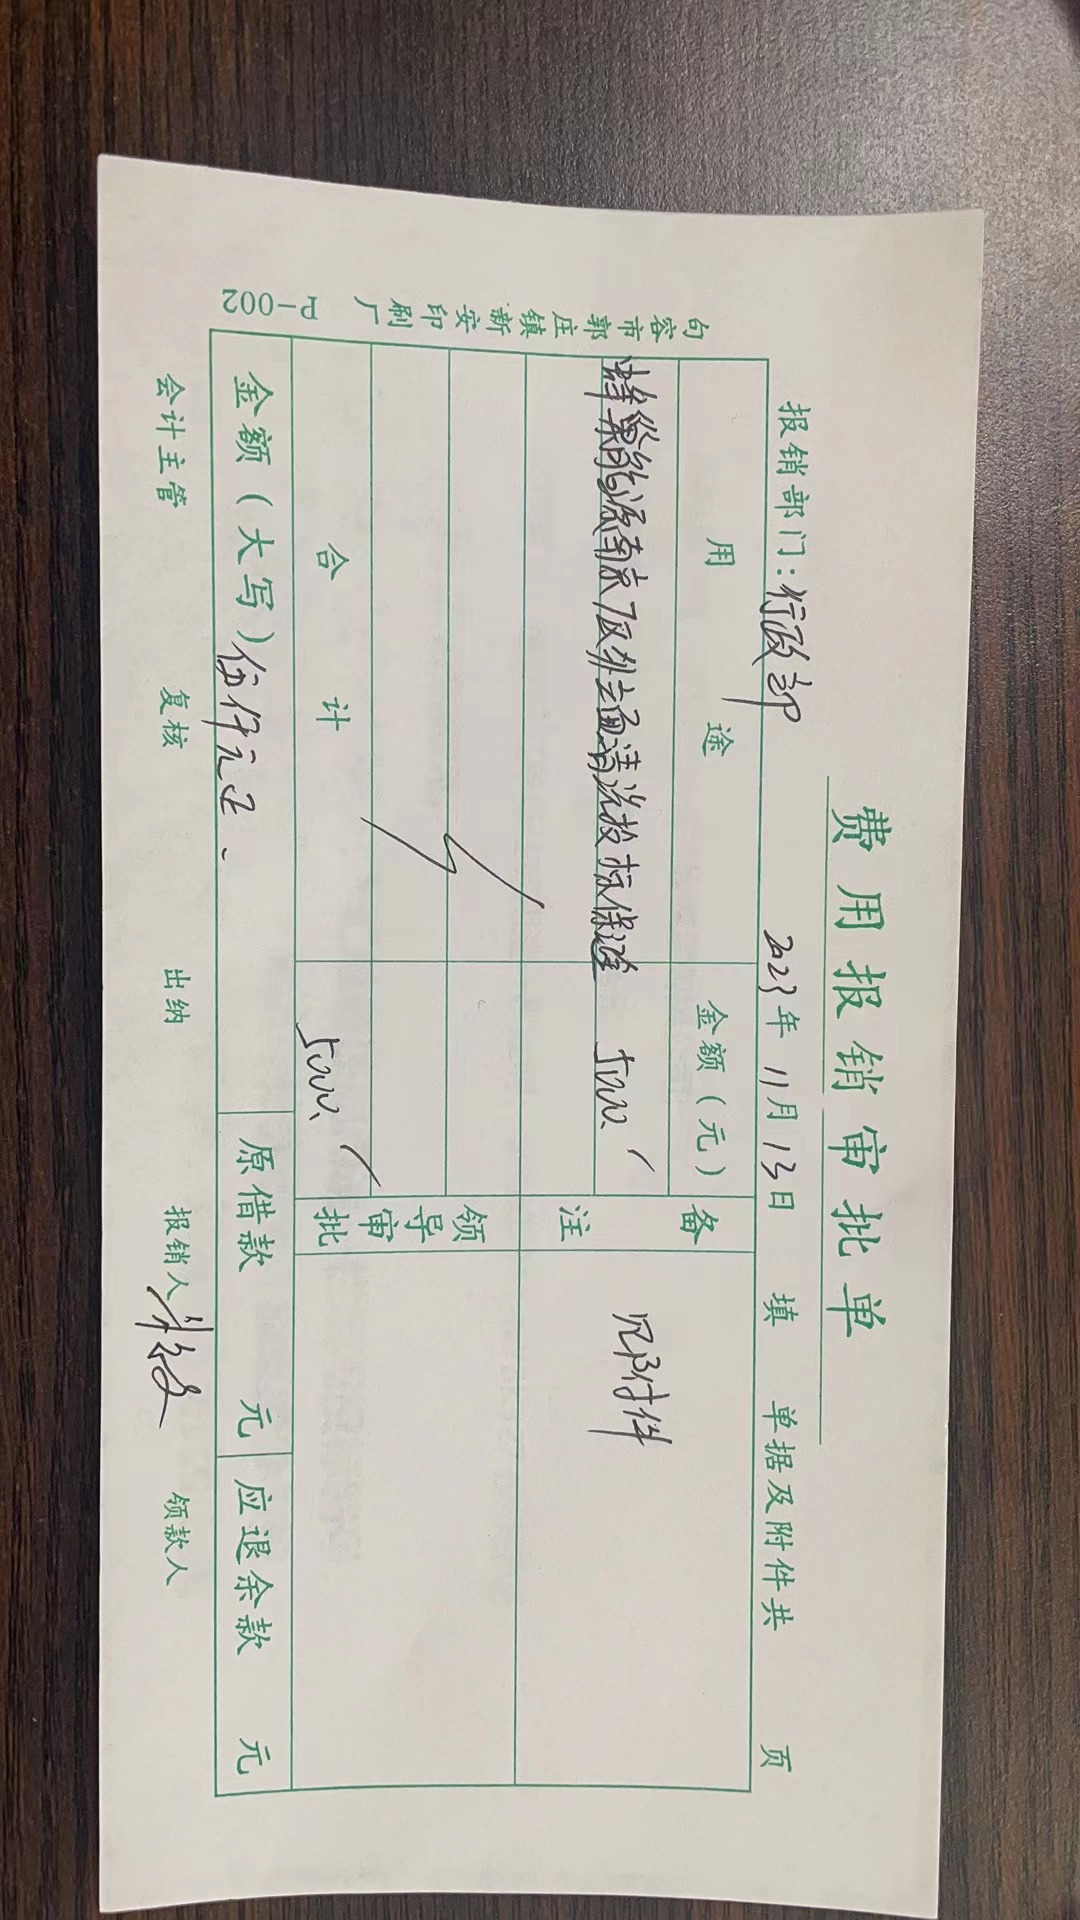 费用报销审批单
报销部门：行政部 2023年11月13日 填 单据及附件共 页
用途 金额（元） 备注
蜂巢能源南京厂区外立面清洗投标保证 5000. 见附件
领导审批
合计 5000.
金额（大写）伍仟元正. 原借款 元 应退余款 元
会计主管 复核 出纳 报销人 领款人
句容市郭庄镇新安印刷厂 P-002